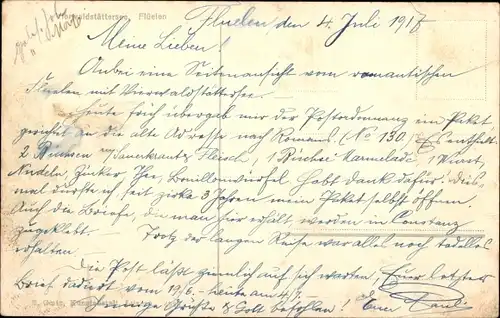 Vierwaldstättersee. Flüelen
Fluelen den 4. Juli 1917
Meine Lieben!
Anbei eine Seitenansicht vom romantischen
Fluelen mit Vierwaldstättersee.
Heute früh übergab mir der Postordonnanz ein Paket
gerichtet an die alte Adresse nach Romans. (No 130) Es enthielt
2 Büchsen Sauerkraut & Fleisch, 1 Büchse Marmelade, 1 Wurst,
Nudeln, Zucker, Thee, Bouillonwürfel. Habt Dank dafür. Dies-
mal durfte ich seit zirka 3 Jahren mein Paket selbst öffnen.
Auch die Briefe, die man hier erhält, werden in Constanz
zugeklebt. Trotz der langen Reise war alles noch tadellos
erhalten.
Die Post läßt ziemlich auf sich warten. Euer letzter
Brief datiert vom 19/6 - heute am 4/7.
Grüße & Gott befohlen! Euer Pauli